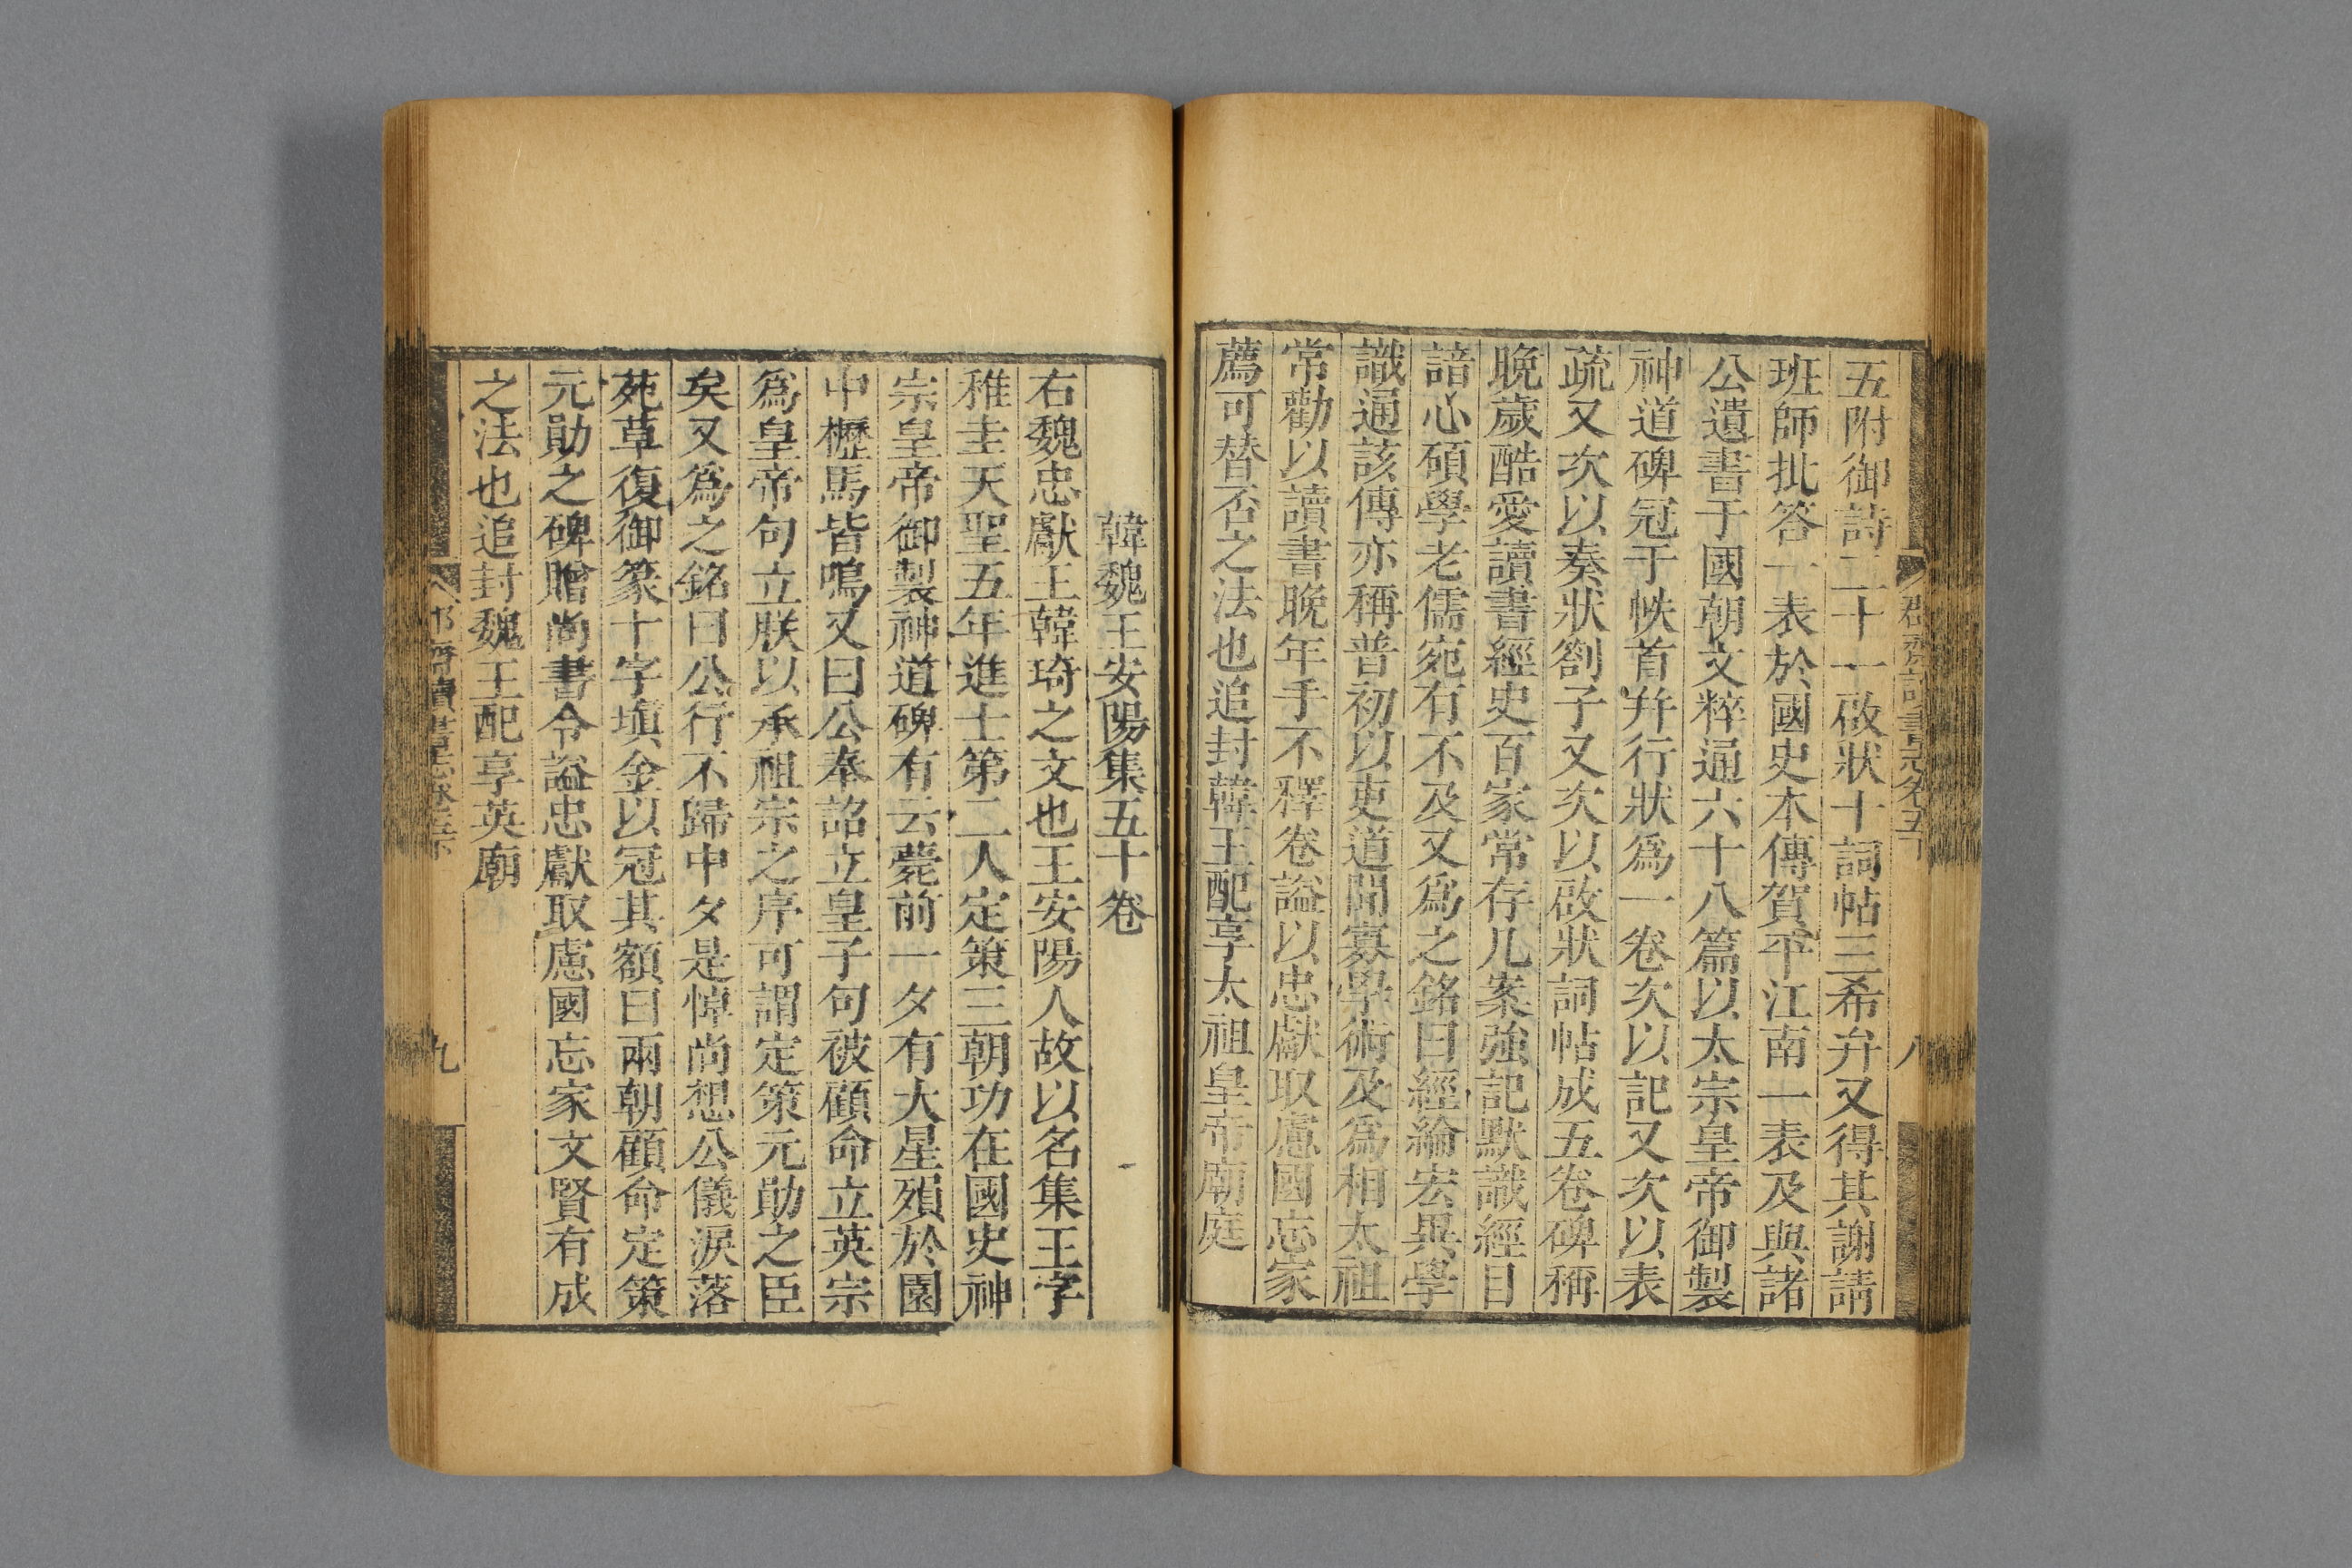 五附御詩二十一啟狀十詞帖三希弁又得其謝請
班師批答一表於國史本傳賀平江南一表及與諸
公遺書于國朝文粹通六十八篇以太宗皇帝御製
神道碑冠于帙首并行狀爲一卷次以記又次以表
疏又次以奏狀劄子又次以啟狀詞帖成五卷碑稱
晚歲酷愛讀書經史百家常存几案強記默識經目
諳心碩學老儒宛有不及又爲之銘曰經綸宏異學
識通該傳亦稱普初以吏道聞寡學術及爲相太祖
常勸以讀書晚年手不釋卷謚以忠獻取慮國忘家
薦可替否之法也追封韓王配享太祖皇帝廟庭
八
韓魏王安陽集五十卷
右魏忠獻王韓琦之文也王安陽人故以名集王字
稚圭天聖五年進士第二人定策三朝功在國史神
宗皇帝御製神道碑有云薨前一夕有大星殞於園
中櫪馬皆鳴又曰公奉詔立皇子句被顧命立英宗
爲皇帝句立朕以承祖宗之序可謂定策元勛之臣
矣又爲之銘曰公行不歸中夕是悼尚想公儀淚落
苑草復御篆十字填金以冠其額曰兩朝顧命定策
元勛之碑贈尚書令謚忠獻取慮國忘家文賢有成
之法也追封魏王配享英廟
九